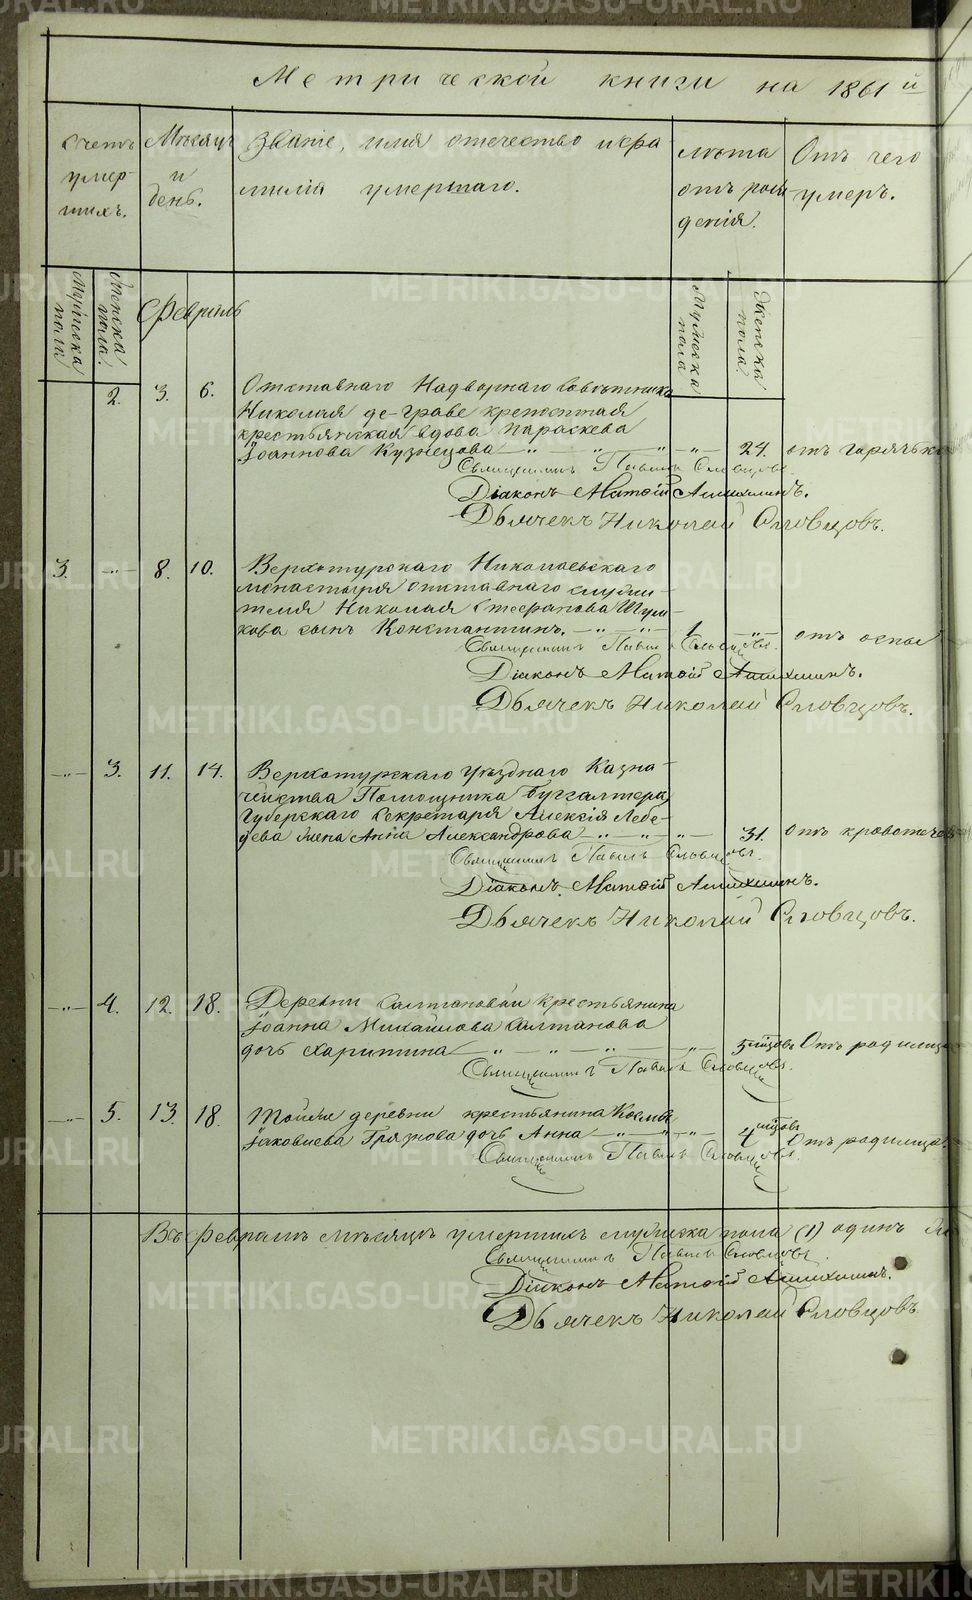 Метрической книги на 1861й
Счетъ умер-шихъ.
Мѣсяцъ и день.
Званіе, имя отечество и фа
милія умершаго.
лѣта отъ рож денія.
Отъ чего умеръ.
Мужеска пола
Женска пола.
Февраль
Мужеска пола
Женска пола.
2. 3. 6. Отставнаго Надворнаго Совѣтника
Николая де-Граве крепостная
крестьянская вдова Параскева
Іоаннова Кузнецова 24. отъ горячьки
Священникъ Павелъ Словцовъ.
Діаконъ Матѳій
Дьячекъ Николай Словцовъ.
3. 8. 10. Верхотурскаго Николаевскаго
монастыря отставнаго служи-
теля Николая Стефанова
кова сынъ Константинъ. 1 отъ оспы
Священникъ Павелъ Словцовъ.
Діаконъ Матѳій
Дьячекъ Николай Словцовъ.
3. 11. 14. Верхотурскаго Уѣзднаго Казна-
чейства Помощника Бухгалтера,
Губерскаго Секретаря Алексія Лебе-
дева жена Анна Александрова 31. отъ кровотече
Священникъ Павелъ Словцовъ.
Діаконъ Матѳій
Дьячекъ Николай Словцовъ.
4. 12. 18. Деревни Салтановой крестьянина
Іоанна Михайлова Салтанова
дочь Харитина 5 мѣцовъ Отъ родимца
Священникъ Павелъ Словцовъ.
5. 13. 18. Тойже деревни крестьянина Космы
Іаковлева Грязнова дочь Анна 4 мѣцовъ Отъ родимца.
Священникъ Павелъ Словцовъ.
Въ Февралѣ мѣсяцѣ умершихъ мужеска пола (1) одинъ
Священникъ Павелъ Словцовъ.
Діаконъ Матѳій
Дьячекъ Николай Словцовъ
METRIKI.GASO-URAL.RU